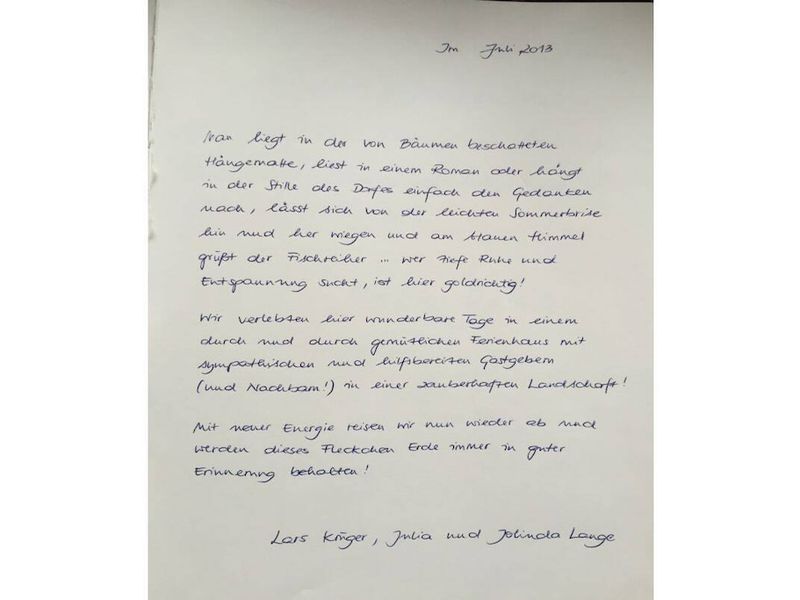 Im Juli 2013
Man liegt in der von Bäumen beschatteten
Hängematte, liest in einem Roman oder hängt
in der Stille des Dorfes einfach den Gedanken
nach, lässt sich von der leichten Sommerbrise
hin und her wiegen und am blauen Himmel
grüßt der Fischreiher ... wer tiefe Ruhe und
Entspannung sucht, ist hier goldrichtig!
Wir verlebten hier wunderbare Tage in einem
durch und durch gemütlichen Ferienhaus mit
sympathischen und hilfsbereiten Gastgebern
(und Nachbarn!) in einer zauberhaften Landschaft!
Mit neuer Energie reisen wir nun wieder ab und
werden dieses Fleckchen Erde immer in guter
Erinnerung behalten!
Lars Krüger, Julia und Jolinda Lange